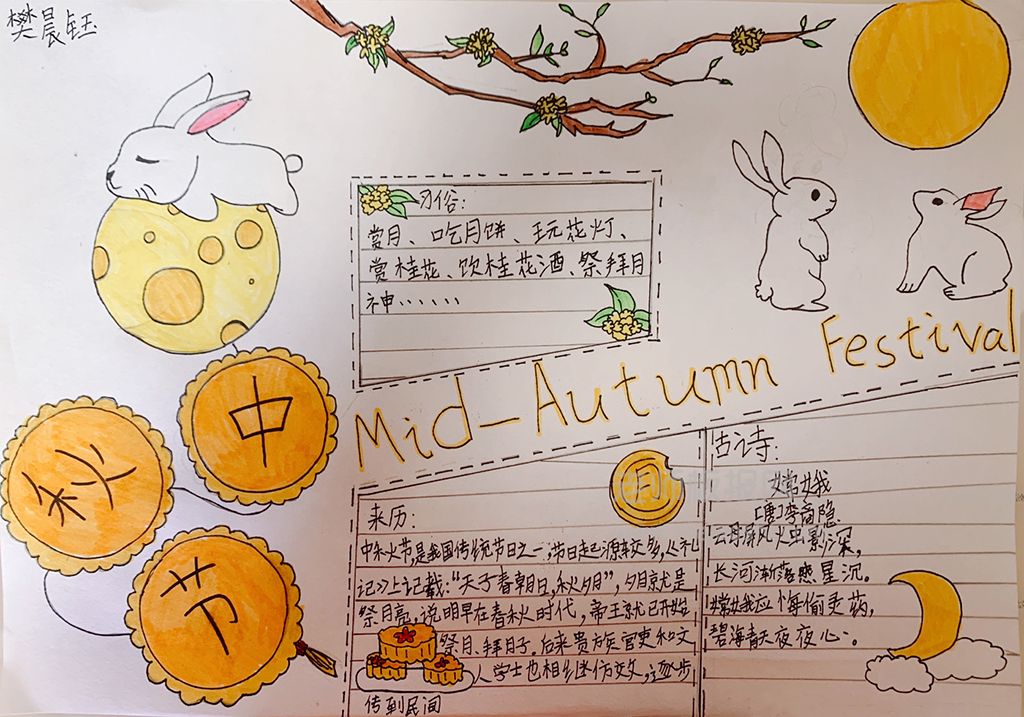 樊晨钰
习俗:
赏月、吃月饼、玩花灯、
赏桂花、饮桂花酒、祭拜月
神……
Mid-Autumn Festival
中
秋
节
月
来历:
中秋节,是我国传统节日之一,节日起源较多,《礼
记》上记载:“天子春朝日,秋夕月”,夕月就是
祭月亮,说明早在春秋时代,帝王就已开始
祭月、拜月了.后来贵族官吏和文
人学士也相继仿效,逐步
传到民间
古诗:
嫦娥
[唐]李商隐
云母屏风烛影深,
长河渐落 星沉。
嫦娥应悔偷灵药,
碧海青天夜夜心。